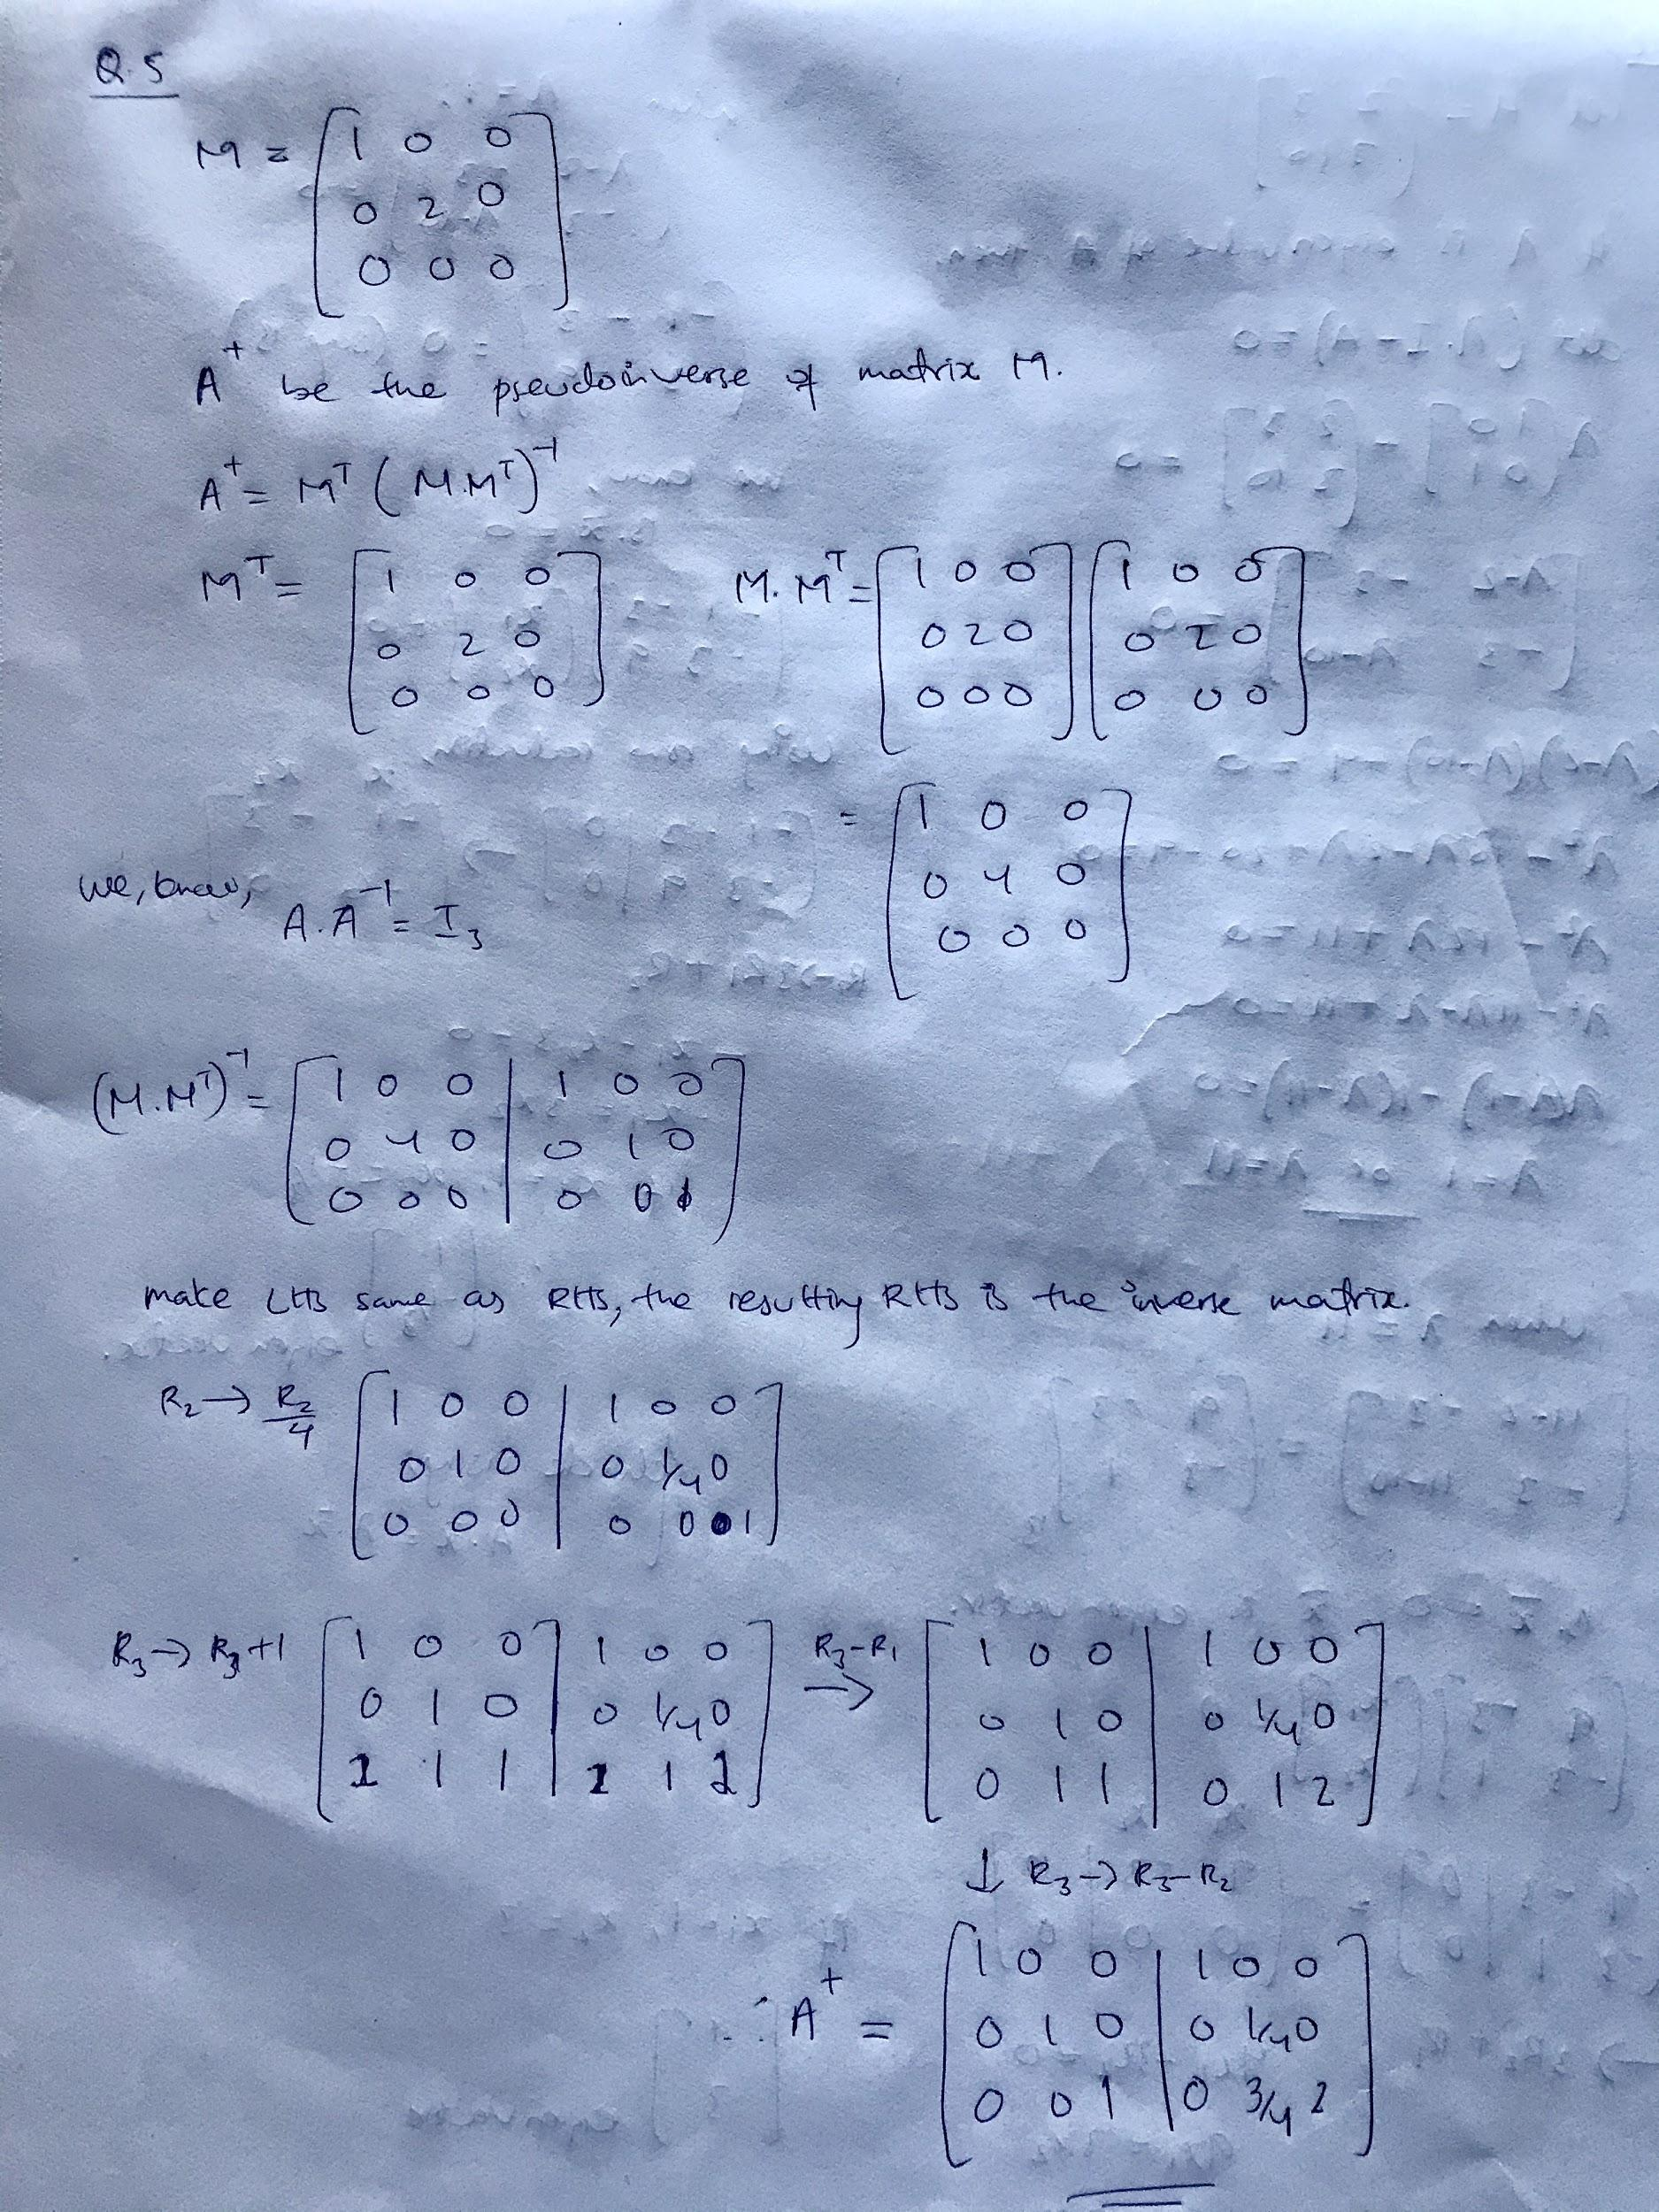 Q.5
M = [1 0 0
0 2 0
0 0 0]
A⁺ be the pseudoinverse of matrix M.
A⁺ = Mᵀ (M.Mᵀ)⁻¹
Mᵀ = [1 0 0
0 2 0
0 0 0]
M.Mᵀ = [1 0 0] [1 0 0]
[0 2 0] [0 2 0]
[0 0 0] [0 0 0]
= [1 0 0
0 4 0
0 0 0]
We, know,
A.A⁻¹ = I₃
(M.Mᵀ)⁻¹ = [1 0 0 | 1 0 0
0 4 0 | 0 1 0
0 0 0 | 0 0 1]
make LHS same as RHS, the resulting RHS is the inverse matrix.
R₂ → R₂/4 [1 0 0 | 1 0 0
0 1 0 | 0 1/4 0
0 0 0 | 0 0 1]
R₃ → R₃+1 [1 0 0 | 1 0 0
0 1 0 | 0 1/4 0
1 1 1 | 1 1 2]
R₃-R₁ → [1 0 0 | 1 0 0
0 1 0 | 0 1/4 0
0 1 1 | 0 1 2]
↓ R₃ → R₃-R₂
∴ A⁺ = [1 0 0 | 1 0 0
0 1 0 | 0 1/4 0
0 0 1 | 0 3/4 2]